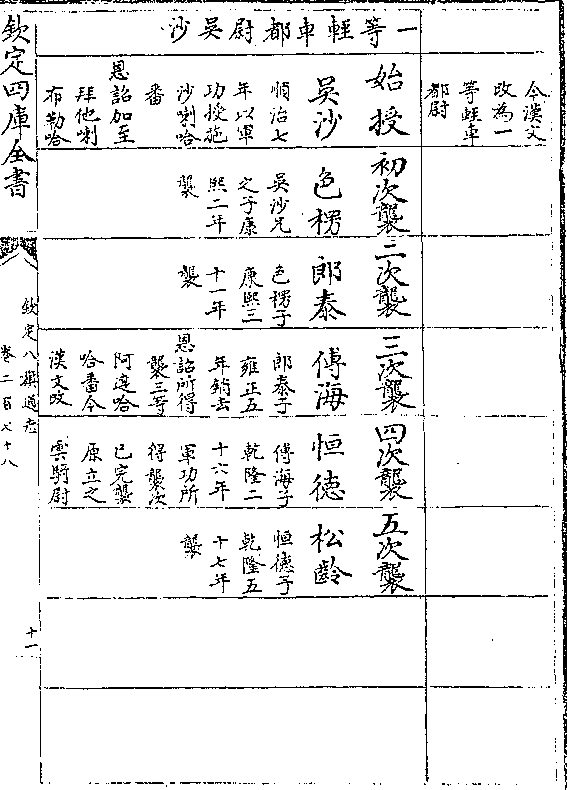 今漢文
改為一
等輕車
都尉
一等輕車都尉吳沙
始授
吳沙
順治七
年以軍
功授施
沙喇哈
番
恩詔加至
拜他喇
布勒哈
初次襲
色楞
吳沙兄
之子康
熙二年
襲
二次襲
郎泰
色楞子
康熙三
十一年
襲
三次襲
傅海
郎泰子
雍正五
年銷去
恩詔所得
襲三等
阿達哈
哈番今
漢文改
四次襲
恒德
傅海子
乾隆二
十六年
軍功所
得襲次
已完襲
原立之
雲騎尉
五次襲
松齡
恒德子
乾隆五
十七年
襲
欽定四庫全書
欽定八旗通志
卷二百七十八
十一